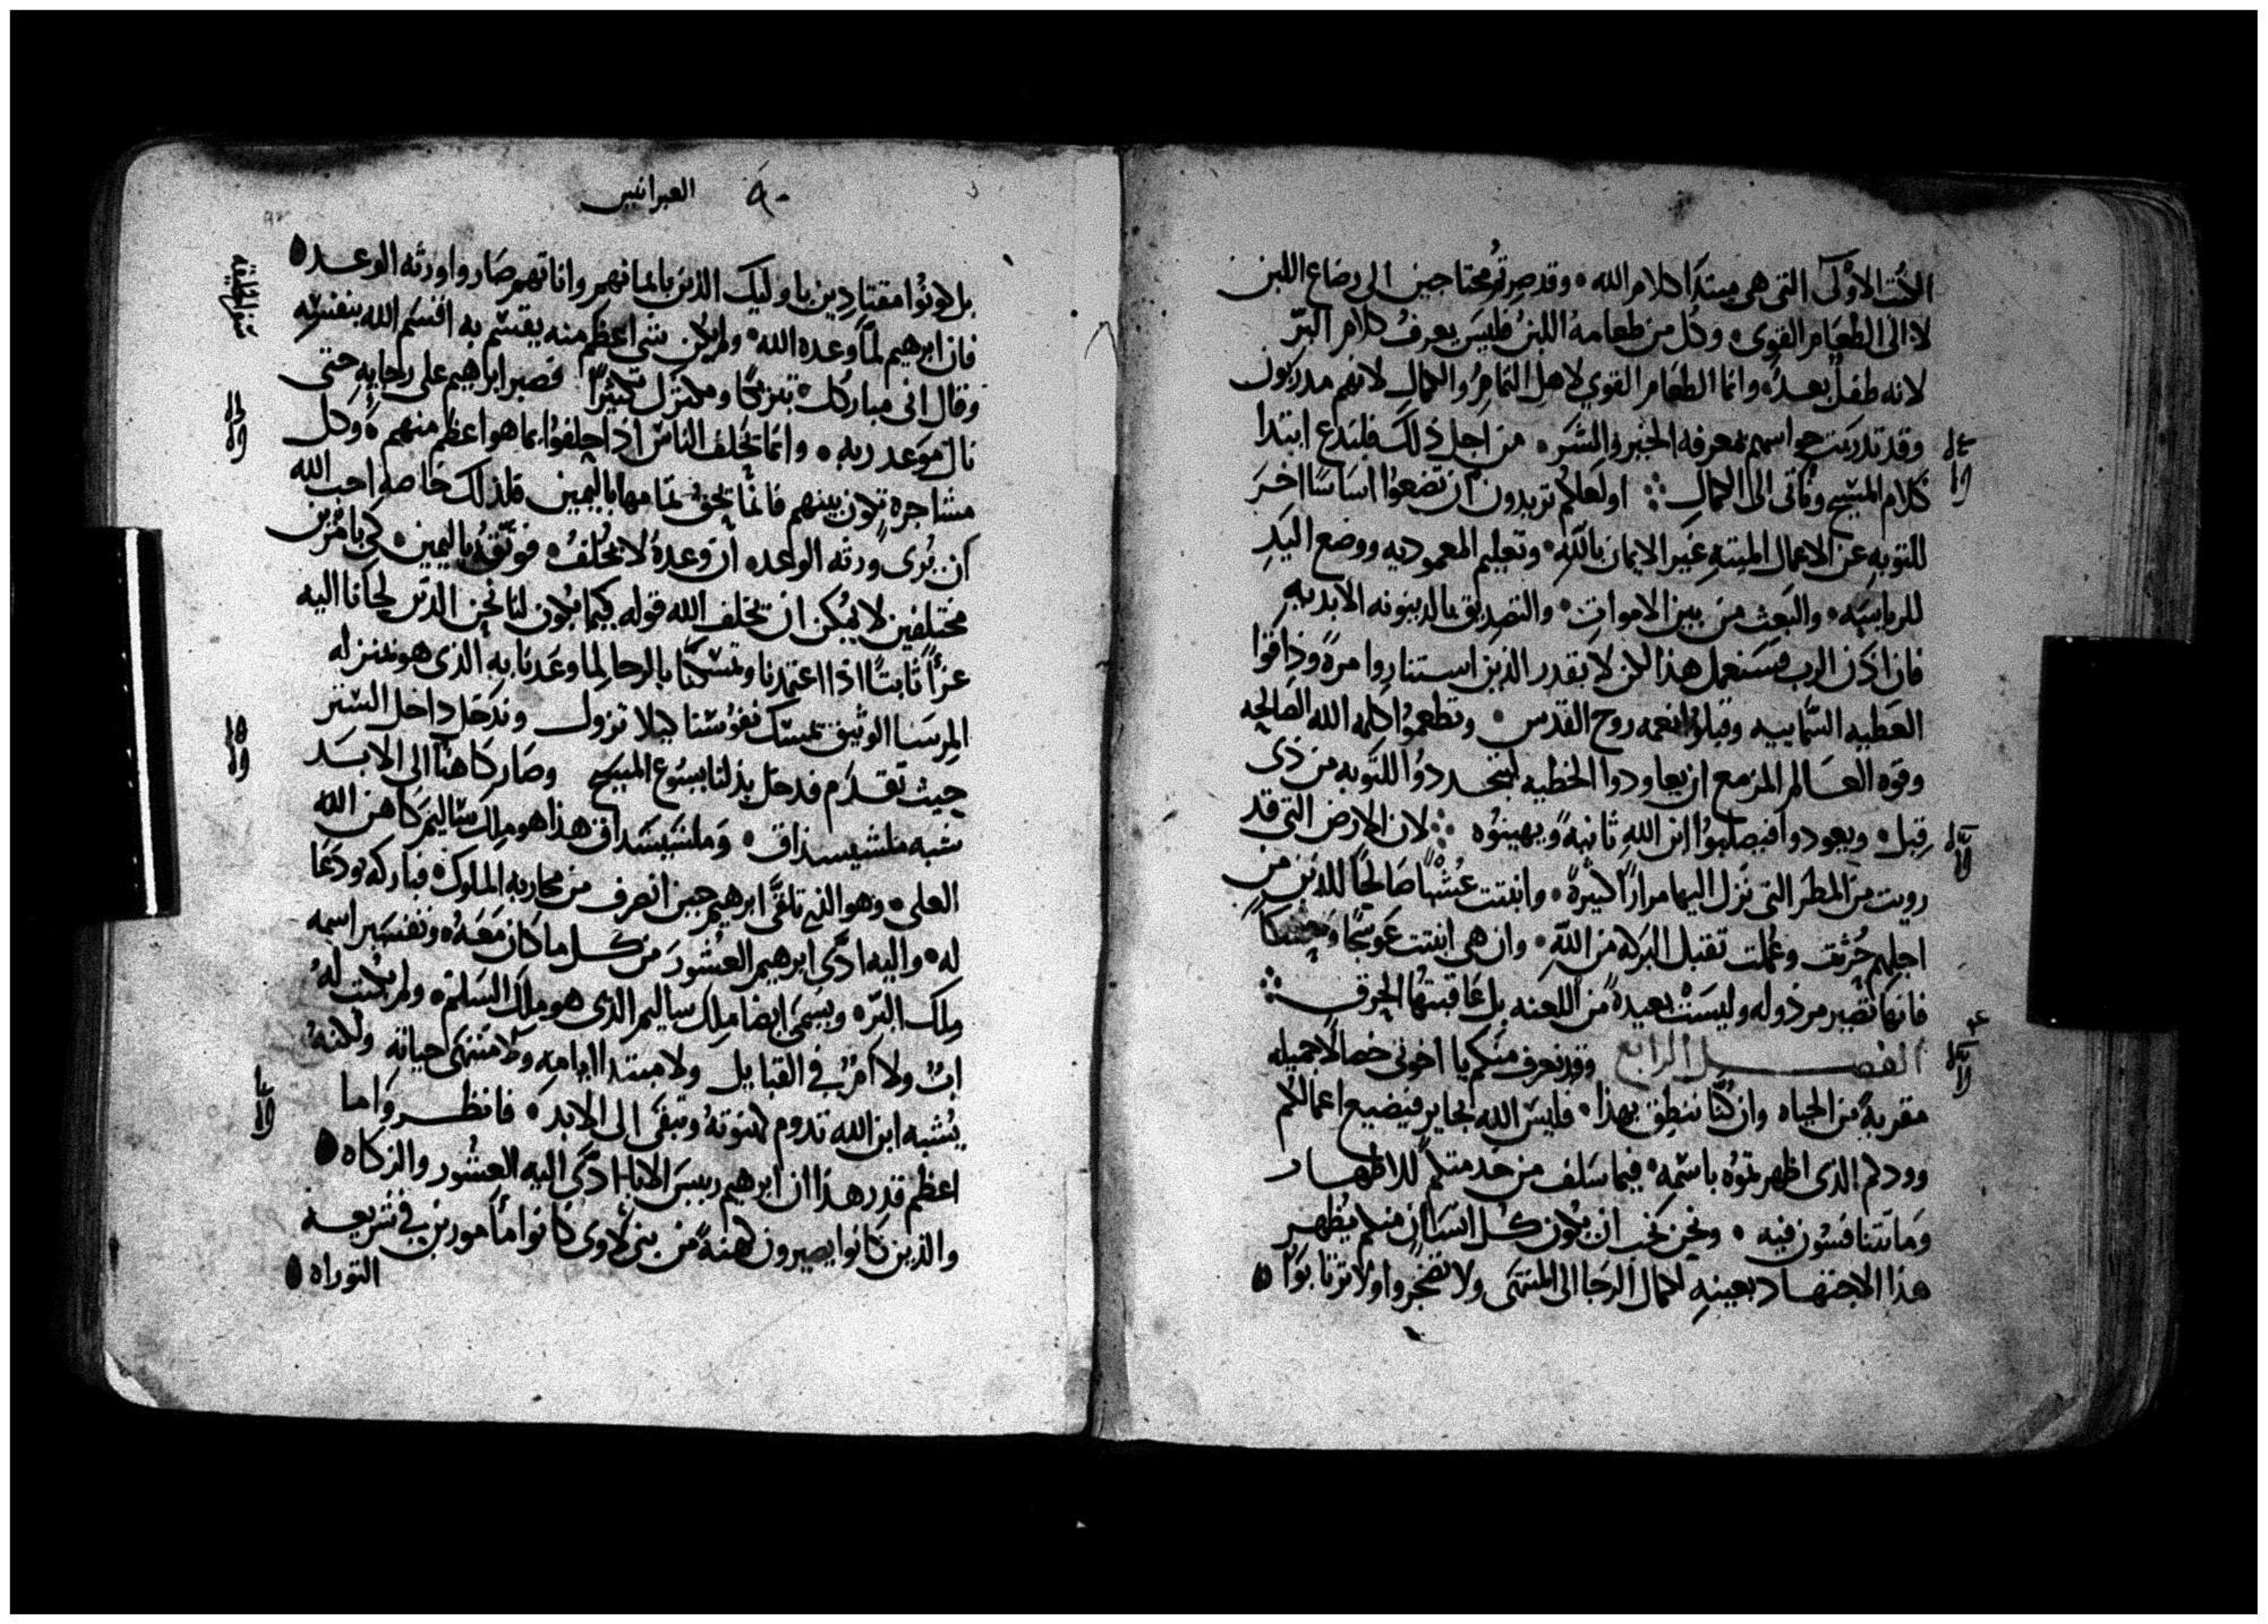 الكتب الاولى التي هي مبتدا كلام الله وقد صرتم محتاجين الى رضاع اللبن
لا الى الطعام القوي وكل من طعامه اللبن فليس يعرف كلام البر
لانه طفل بعد وانما الطعام القوي لاهل التمام والكمال لانهم مدربون
وقد تدربت حواسهم بمعرفه الخير والشر من اجل ذلك فلندع ابتدا
كلام المسيح وناتى الى الكمال اولعلكم تريدون ان تضعوا اساسا اخر
للتوبه عن الاعمال الميته غير الايمان بالله وتعليم المعموديه ووضع اليد
للرياسه والبعث من بين الاموات والتصديق بالدينونه الابديه
فان اذن الرب فسنعمل هذا لكن لا يقدر الذين استناروا مرة وذاقوا
العطيه السماييه وقبلوا نعمه روح القدس وتطعموا كلمه الله الصالحه
وقوه العالم المزمع ان يعاودوا الخطيه ليتجددوا للتوبه من ذي
قبل ويعودوا فيصلبوا ابن الله ثانية ويهينوه لان الارض التي قد
رويت من المطر التي نزل اليها مرارا كثيرة وانبتت عشبا صالحا للذين من
اجلهم حرثت وعملت تقبل البركه من الله وان هي انبتت عوسجا وحسكا
فانها تصير مرذوله وليست بعيدة من اللعنه بل عاقبتها الحرق
الفصل الرابع وقد نعرف منكم يا اخوتي خصالا جميله
مقربة من الحياه وان كنا ننطق بهذا فليس الله بجاير فيضيع اعمالكم
وودكم الذي اظهرتموه باسمه فيما سلف من خدمتكم للاطهار
وما تتنافسون فيه ونحن نحب ان يكون كل انسان منكم يظهر
هذا الاجتهاد بعينه لكمال الرجا الى المنتهى ولا تضجروا ولا ترتابوا
العبرانيين ٩٠
بل كونوا مقتادين باوليك الذين بايمانهم واناتهم صاروا ورثه الوعد
فان ابرهيم لما وعده الله ولم يكن شي اعظم منه يقسم به اقسم الله بنفسه
وقال اني مباركك تبريكا ومكثرك تكثيرا فصبر ابراهيم على رجايه حتى
نال موعد ربه وانما يحلف الناس اذا حلفوا بما هو اعظم منهم وكل
مشاجرة تكون بينهم فانما تحق تمامها باليمين فلذلك خاصه احب الله
ان يرى ورثه الوعد ان وعده لا يخلف فوثقه باليمين كي بامرين
مختلفين لا يمكن ان يخلف الله قوله كيما يكون لنا نحن الذين لجانا اليه
عزا ثابتا اذا اعتمدنا وتمسكنا بالرجا لما وعدنا به الذي هو بمنزله
المرسا الوثيق تمسك نفوسنا كيلا تزول وتدخل داخل الستر
حيث تقدم فدخل بدلنا يسوع المسيح وصار كاهنا الى الابد
شبه ملشيسداق وملشيسداق هذا هو ملك ساليم كاهن الله
العلي وهو الذي تلقى ابرهيم حين انصرف من محاربه الملوك فباركه ودعا
له واليه ادى ابرهيم العشور من كل ما كان معه وتفسير اسمه
ملك البر ويسمى ايضا ملك ساليم الذي هو ملك السلم ولم يكتب له
اب ولا ام في القبايل ولا مبتدا ايامه ولا منتهى حياته ولكنه
يشبه ابن الله تدوم كهنوته وتبقى الى الابد فانظروا ما
اعظم قدر هذا ان ابرهيم رييس الابا ادى اليه العشور والزكاه
والذين كانوا يصيرون كهنة من بني لاوى كانوا مأمورين في شريعه
التوراه